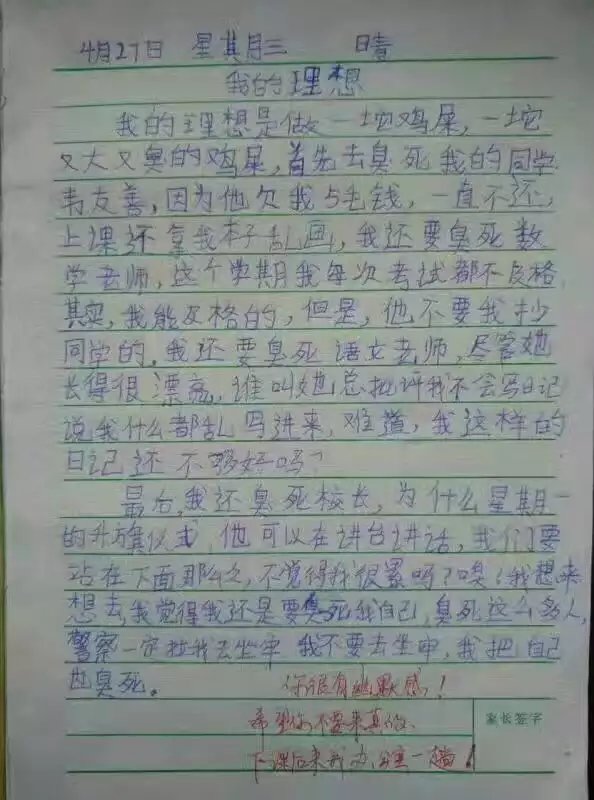 4月27日 星其月三 晴
我的理想
我的理想是做一坨鸡屎,一坨
又大又臭的鸡屎,首先去臭死我的同学
韦友善,因为他欠我5毛钱,一直不还,
上课还拿我本子乱画,我还要臭死数
学老师,这个学期我每次考试都不及格,
其实,我能及格的,但是,他不要我抄
同学的,我还要臭死语文老师,尽管她
长得很漂亮,谁叫她总批评我不会写日记
说我什么都乱写进来,难道,我这样的
日记还不够好吗?
最后,我还臭死校长,为什么星期一
的升旗仪式,他可以在讲台讲话,我们要
站在下面那么久,不觉得我很累吗?唉!我想来
想去,我觉得我还是要臭死我自己,臭死这么多人,
警察一定拉我去坐牢,我不要去坐牢,我把自己
也臭死。 你很有幽默感!
希望你不要来真的.
家长签字
下课后来我办公室一趟!